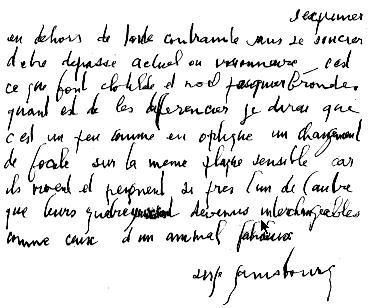 s'exprimer
en dehors de toute contrainte sans se soucier
d'etre depassé actuel ou visionnaire c'est
ce que font clotilde et noel pasquier bronde.
quant est de les differencier je dirai que
c'est un peu comme en optique un changement
de focale sur la meme plaque sensible car
ils vivent et peignent si pres l'un de l'autre
que leurs quatre yeux sont devenus interchangeables
comme ceux d'un animal fabuleux
serge gainsbourg